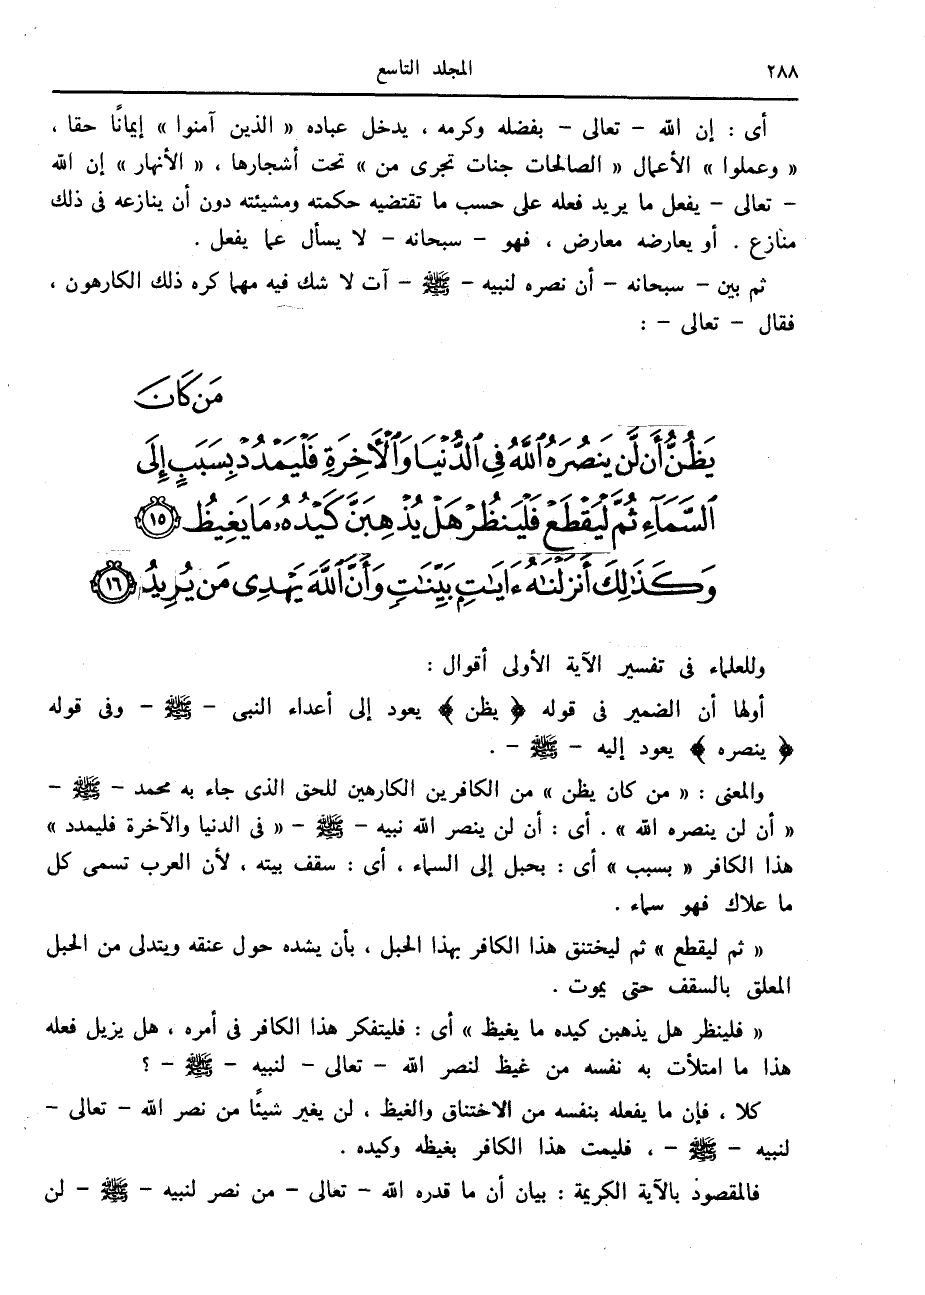 ٢٨٨ المجلد التاسع
أى : إن الله – تعالى – بفضله وكرمه ، يدخل عباده « الذين آمنوا » إيمانًا حقا ،
« وعملوا » الأعمال « الصالحات جنات تجرى من » تحت أشجارها ، « الأنهار » إن الله
– تعالى – يفعل ما يريد فعله على حسب ما تقتضيه حكمته ومشيئته دون أن ينازعه فى ذلك
منازع . أو يعارضه معارض ، فهو – سبحانه – لا يسأل عما يفعل .
ثم بين – سبحانه – أن نصره لنبيه – ﷺ – آت لا شك فيه مهما كره ذلك الكارهون ،
فقال – تعالى – :
مَن كَانَ
يَظُنُّ أَن لَّن يَنصُرَهُ ٱللَّهُ فِى ٱلدُّنْيَا وَٱلْأَخِرَةِ فَلْيَمْدُدْ بِسَبَبٍ إِلَى
ٱلسَّمَآءِ ثُمَّ لْيَقْطَعْ فَلْيَنظُرْ هَلْ يُذْهِبَنَّ كَيْدُهُۥ مَا يَغِيظُ ١٥
وَكَذَٰلِكَ أَنزَلْنَٰهُ ءَايَٰتٍۭ بَيِّنَٰتٍ وَأَنَّ ٱللَّهَ يَهْدِى مَن يُرِيدُ ١٦
وللعلماء فى تفسير الآية الأولى أقوال :
أولها أن الضمير فى قوله ﴿ يظن ﴾ يعود إلى أعداء النبى – ﷺ – وفى قوله
﴿ ينصره ﴾ يعود إليه – ﷺ – .
والمعنى : « من كان يظن » من الكافرين الكارهين للحق الذى جاء به محمد – ﷺ –
« أن لن ينصره الله » . أى : أن لن ينصر الله نبيه – ﷺ – « فى الدنيا والآخرة فليمدد »
هذا الكافر « بسبب » أى : بحبل إلى السماء ، أى : سقف بيته ، لأن العرب تسمى كل
ما علاك فهو سماء .
« ثم ليقطع » ثم ليختنق هذا الكافر بهذا الحبل ، بأن يشده حول عنقه ويتدلى من الحبل
المعلق بالسقف حتى يموت .
« فلينظر هل يذهبن كيده ما يغيظ » أى : فليتفكر هذا الكافر فى أمره ، هل يزيل فعله
هذا ما امتلأت به نفسه من غيظ لنصر الله – تعالى – لنبيه – ﷺ – ؟
كلا ، فإن ما يفعله بنفسه من الاختناق والغيظ ، لن يغير شيئًا من نصر الله – تعالى –
لنبيه – ﷺ – ، فليمت هذا الكافر بغيظه وكيده .
فالمقصود بالآية الكريمة : بيان أن ما قدره الله – تعالى – من نصر لنبيه – ﷺ – لن